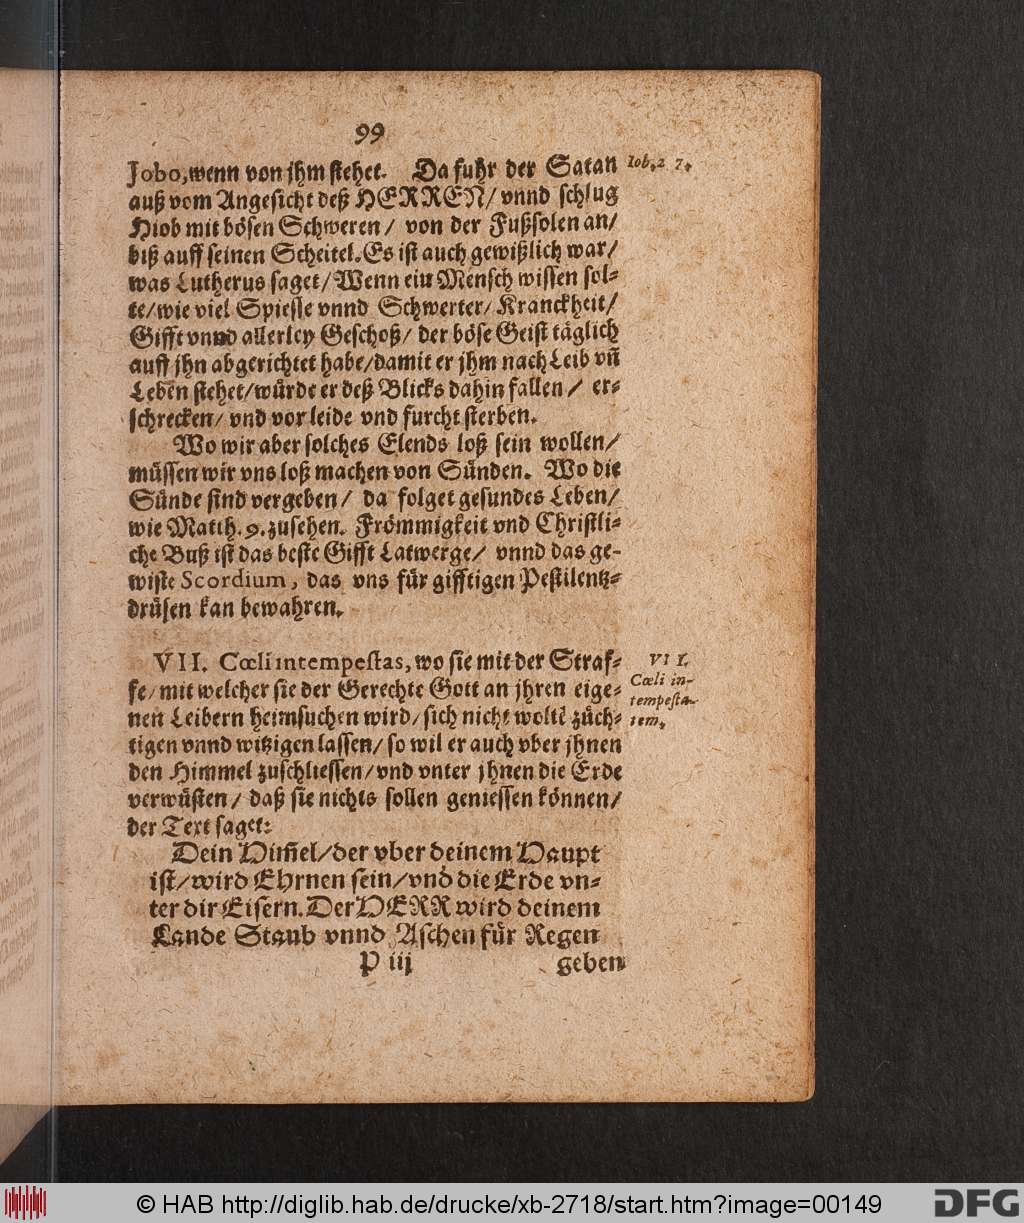 99
Jobo, wenn von jhm stehet. Da fuhr der Satan
Iob. 2 7.
auß vom Angesicht deß HERREN/ vnnd schlug
Hiob mit bösen Schweren/ von der Fußsolen an/
biß auff seinen Scheitel. Es ist auch gewißlich war/
was Lutherus saget/ Wenn ein Mensch wissen sol-
te/ wie viel Spiesse vnnd Schwerter/ Kranckheit/
Gifft vnnd allerley Geschoß/ der böse Geist täglich
auff jhn abgerichtet habe/ damit er jhm nach Leib vñ
Leben stehet/ würde er deß Blicks dahin fallen/ er-
schrecken/ vnd vor leide vnd furcht sterben.
Wo wir aber solches Elends loß sein wollen/
müssen wir vns loß machen von Sünden. Wo die
Sünde sind vergeben/ da folget gesundes Leben/
wie Matth. 9. zusehen. Frömmigkeit vnd Christli-
che Buß ist das beste Gifft Latwerge/ vnnd das ge-
wiste Scordium, das vns für gifftigen Pestilentz-
drüsen kan bewahren.
VII. Cœli intempestas, wo sie mit der Straf-
VII.
Cœli in-
tempesta-
tem.
fe/ mit welcher sie der Gerechte Gott an jhren eige-
nen Leibern heimsuchen wird/ sich nicht woltē züch-
tigen vnnd witzigen lassen/ so wil er auch vber jhnen
den Himmel zuschliessen/ vnd vnter jhnen die Erde
verwüsten/ daß sie nichts sollen geniessen können/
der Text saget:
Dein Him̃el/ der vber deinem Haupt
ist/ wird Ehrnen sein/ vnd die Erde vn-
ter dir Eisern. Der HERR wird deinem
Lande Staub vnnd Aschen für Regen
P iij
geben
© HAB http://diglib.hab.de/drucke/xb-2718/start.htm?image=00149
DFG